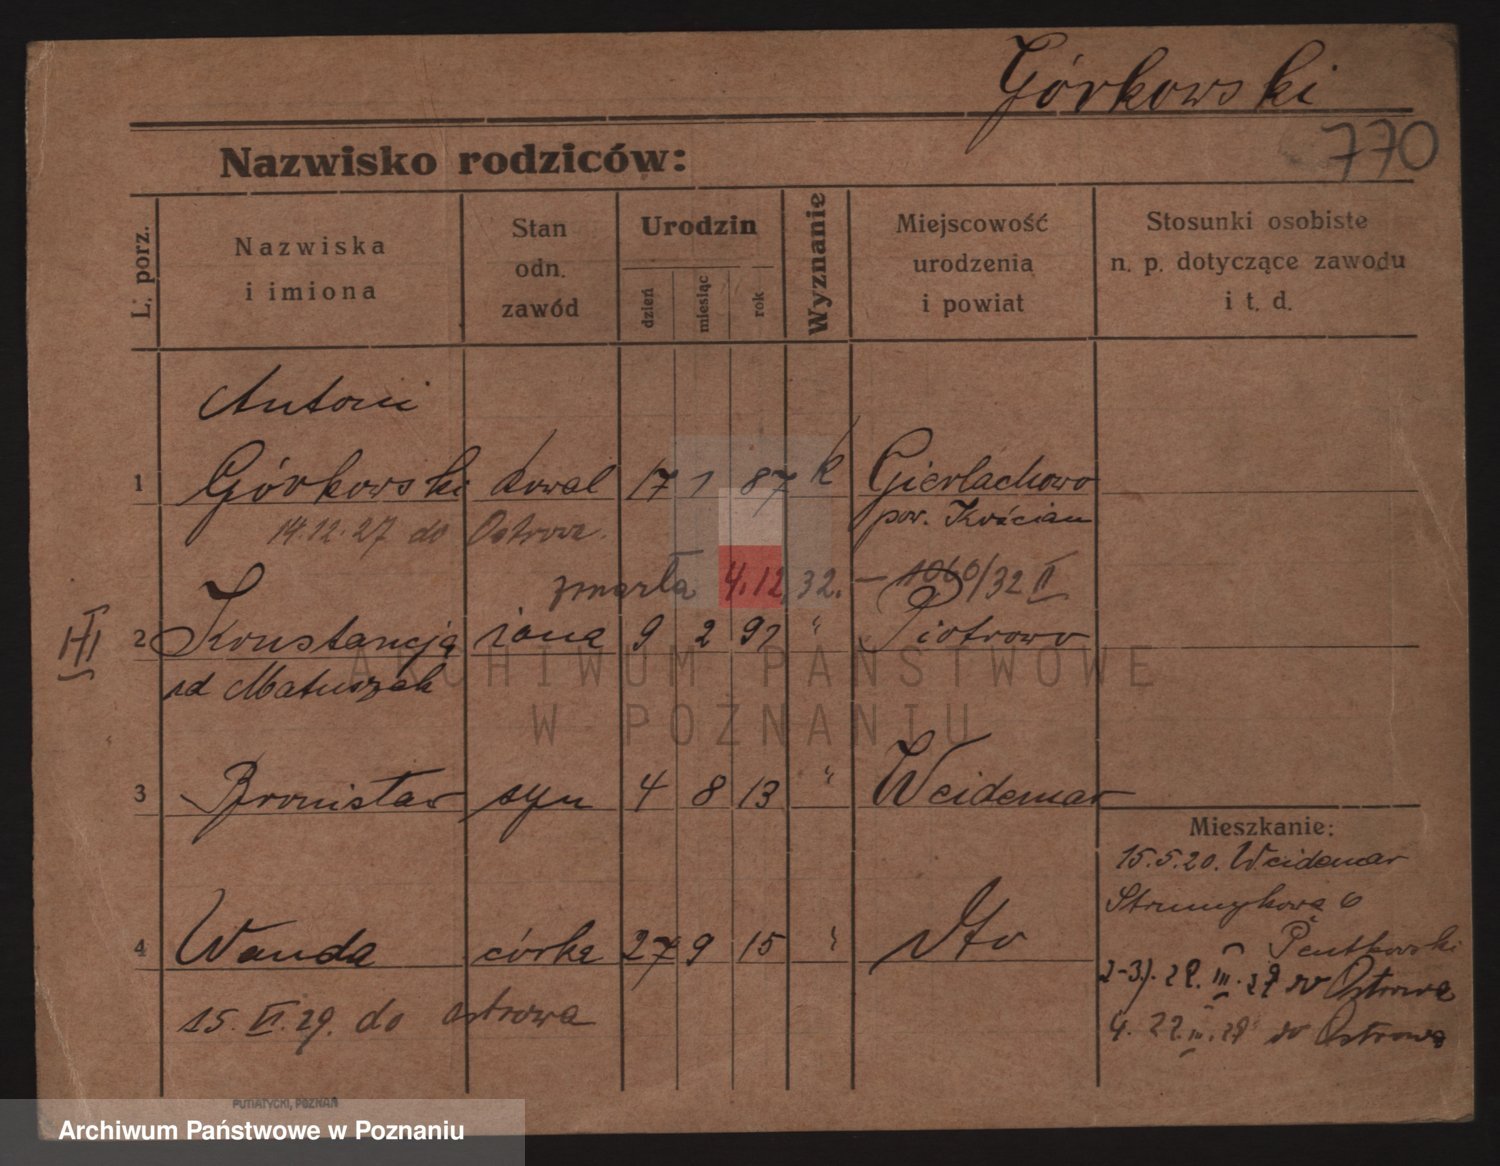 Górkowski
770
Nazwisko rodziców:
L. porz.
Nazwiska
i imiona
Stan
odn.
zawód
Urodzin
dzień
miesiąc
rok
Wyznanie
Miejscowość
urodzenia
i powiat
Stosunki osobiste
n. p. dotyczące zawodu
i t. d.
Antoni
1 Górkowski kowal 17 1 87 k Gierlachowo
14.12.27 do Ostrowa. pow. Kościan
zmarła 4.12.32. – 1060/32 II
III
2 Konstancja żona 9 2 92 " Piotrowo
zd Matuszak
ARCHIWUM PAŃSTWOWE
W POZNANIU
3 Bronisław syn 4 8 13 " Weidemar
Mieszkanie:
15.5.20. Weidemar
Strumykowa 6
4 Wanda córka 27 9 15 " dto
Pentkowski
2-3.) 28. III. 28 do Ostrowa
15. VI. 29. do Ostrowa
4. 22. III. 28 do Ostrowa
PUTIATYCKI, POZNAŃ
Archiwum Państwowe w Poznaniu